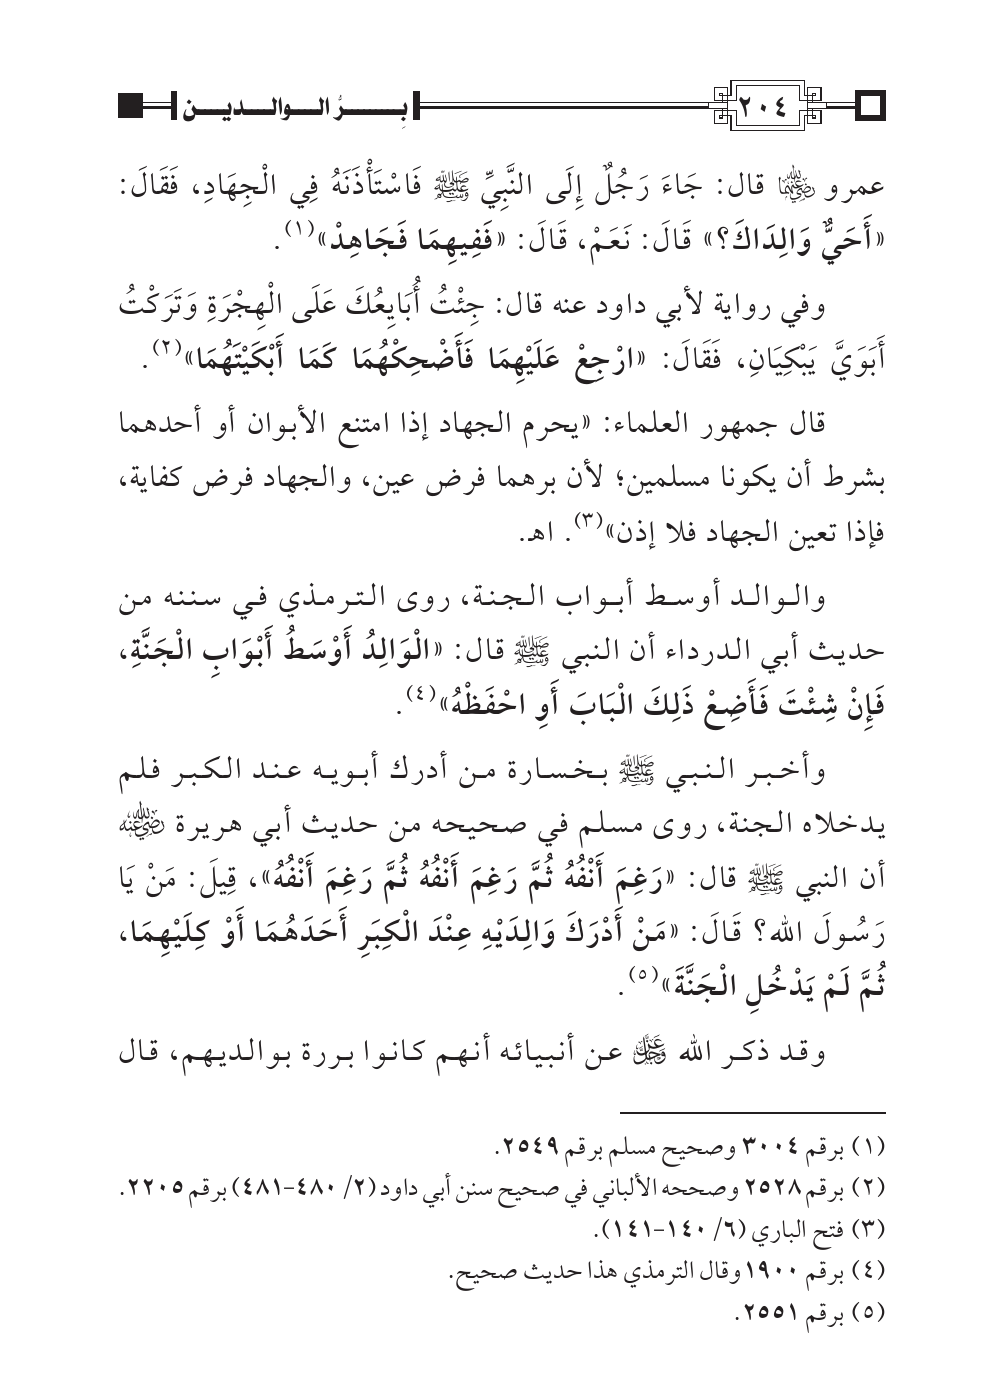 ٢٠٤ بِـــرُّ الـــوالـــديـــن
عمرو ﵄ قال: جَاءَ رَجُلٌ إِلَى النَّبِيِّ ﷺ فَاسْتَأْذَنَهُ فِي الْجِهَادِ، فَقَالَ:
«أَحَيٌّ وَالِدَاكَ؟» قَالَ: نَعَمْ، قَالَ: «فَفِيهِمَا فَجَاهِدْ»(١).
وفي رواية لأبي داود عنه قال: جِئْتُ أُبَايِعُكَ عَلَى الْهِجْرَةِ وَتَرَكْتُ
أَبَوَيَّ يَبْكِيَانِ، فَقَالَ: «ارْجِعْ عَلَيْهِمَا فَأَضْحِكْهُمَا كَمَا أَبْكَيْتَهُمَا»(٢).
قال جمهور العلماء: «يحرم الجهاد إذا امتنع الأبوان أو أحدهما
بشرط أن يكونا مسلمين؛ لأن برهما فرض عين، والجهاد فرض كفاية،
فإذا تعين الجهاد فلا إذن»(٣). اهـ.
والوالد أوسط أبواب الجنة، روى الترمذي في سننه من
حديث أبي الدرداء أن النبي ﷺ قال: «الْوَالِدُ أَوْسَطُ أَبْوَابِ الْجَنَّةِ،
فَإِنْ شِئْتَ فَأَضِعْ ذَلِكَ الْبَابَ أَوِ احْفَظْهُ»(٤).
وأخبر النبي ﷺ بخسارة من أدرك أبويه عند الكبر فلم
يدخلاه الجنة، روى مسلم في صحيحه من حديث أبي هريرة ﵁
أن النبي ﷺ قال: «رَغِمَ أَنْفُهُ ثُمَّ رَغِمَ أَنْفُهُ ثُمَّ رَغِمَ أَنْفُهُ»، قِيلَ: مَنْ يَا
رَسُولَ الله؟ قَالَ: «مَنْ أَدْرَكَ وَالِدَيْهِ عِنْدَ الْكِبَرِ أَحَدَهُمَا أَوْ كِلَيْهِمَا،
ثُمَّ لَمْ يَدْخُلِ الْجَنَّةَ»(٥).
وقد ذكر الله ﷿ عن أنبيائه أنهم كانوا بررة بوالديهم، قال
(١) برقم ٣٠٠٤ وصحيح مسلم برقم ٢٥٤٩.
(٢) برقم ٢٥٢٨ وصححه الألباني في صحيح سنن أبي داود (٢/ ٤٨٠-٤٨١) برقم ٢٢٠٥.
(٣) فتح الباري (٦/ ١٤٠-١٤١).
(٤) برقم ١٩٠٠ وقال الترمذي هذا حديث صحيح.
(٥) برقم ٢٥٥١.